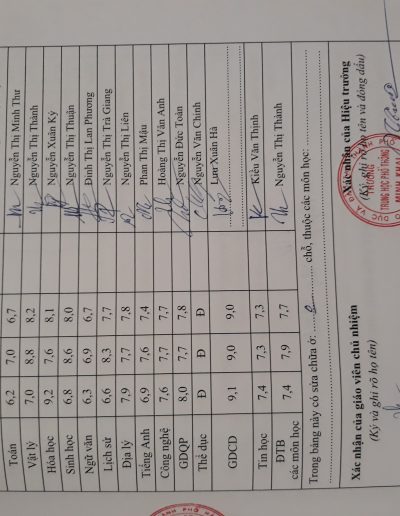 Toán 6,2 7,0 6,7 Nguyễn Thị Minh Thư
Vật lý 7,0 8,8 8,2 Nguyễn Thị Thành
Hóa học 9,2 7,6 8,1 Nguyễn Xuân Ký
Sinh học 6,8 8,6 8,0 Nguyễn Thị Thuận
Ngữ văn 6,3 6,9 6,7 Đinh Thị Lan Phương
Lịch sử 6,6 8,3 7,7 Nguyễn Thị Trà Giang
Địa lý 7,9 7,7 7,8 Nguyễn Thị Liên
Tiếng Anh 6,9 7,6 7,4 Phan Thị Mậu
Công nghệ 7,6 7,7 7,7 Hoàng Thị Vân Anh
GDQP 8,0 7,7 7,8 Nguyễn Đức Toàn
Thể dục Đ Đ Đ Nguyễn Văn Chinh
GDCD 9,1 9,0 9,0 Lưu Xuân Hà
Tin học 7,4 7,3 7,3 Kiều Văn Thịnh
ĐTB 7,4 7,9 7,7 Nguyễn Thị Thành
các môn học
Trong bảng này có sửa chữa ở: ........ chỗ, thuộc các môn học:
Xác nhận của giáo viên chủ nhiệm Xác nhận của Hiệu trưởng
(Ký và ghi rõ họ tên) (Ký, ghi rõ họ tên và đóng dấu)
TRƯỜNG
TRUNG HỌC PHỔ THÔNG
MINH KHAI